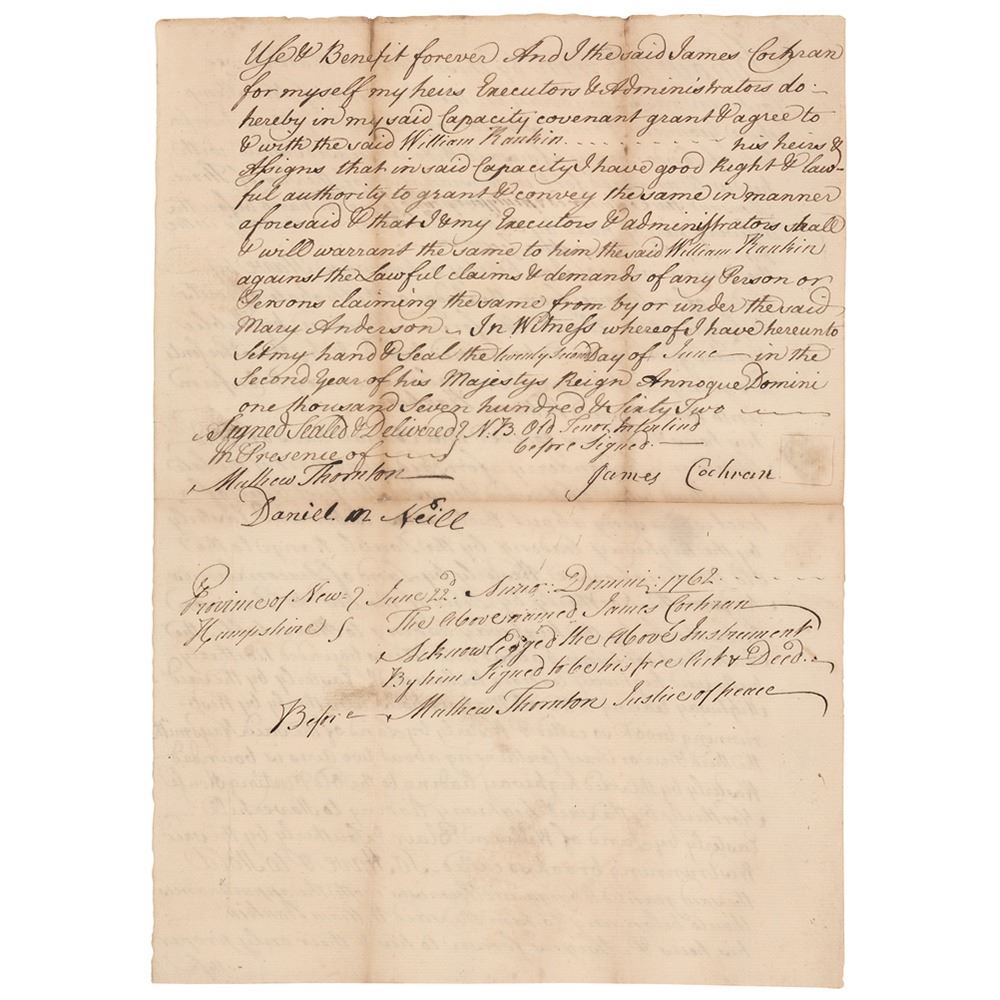 Use & Benefit forever And I the said James Cochran
for myself my heirs Executors & Administrators do
hereby in my said Capacity covenant grant & agree to
& with the said William Rankin his heirs &
Assigns that in said Capacity I have good Right & law-
ful authority to grant & convey the same in manner
aforesaid & that I & my Executors & administrators shall
& will warrant the same to him the said William Rankin
against the Lawful claims & demands of any Person or
Persons claiming the same from by or under the said
Mary Anderson In Witness whereof I have hereunto
Set my hand & Seal the twenty Second Day of June in the
Second Year of his Majestys Reign Annoque Domini
one thousand Seven hundred & Sixty Two
Signed Sealed & Delivered N.B. Old Tenor Interlind
In Presence of before Signed
Mathew Thornton James Cochran
Daniel Mc Neill
Province of New= June 22d. Anno: Domini: 1762
Hampshire The Above named James Cochran
Acknowledged the Above Instrument
By him Signed to be his free Act & Deed.
Before Mathew Thornton Justice of peace